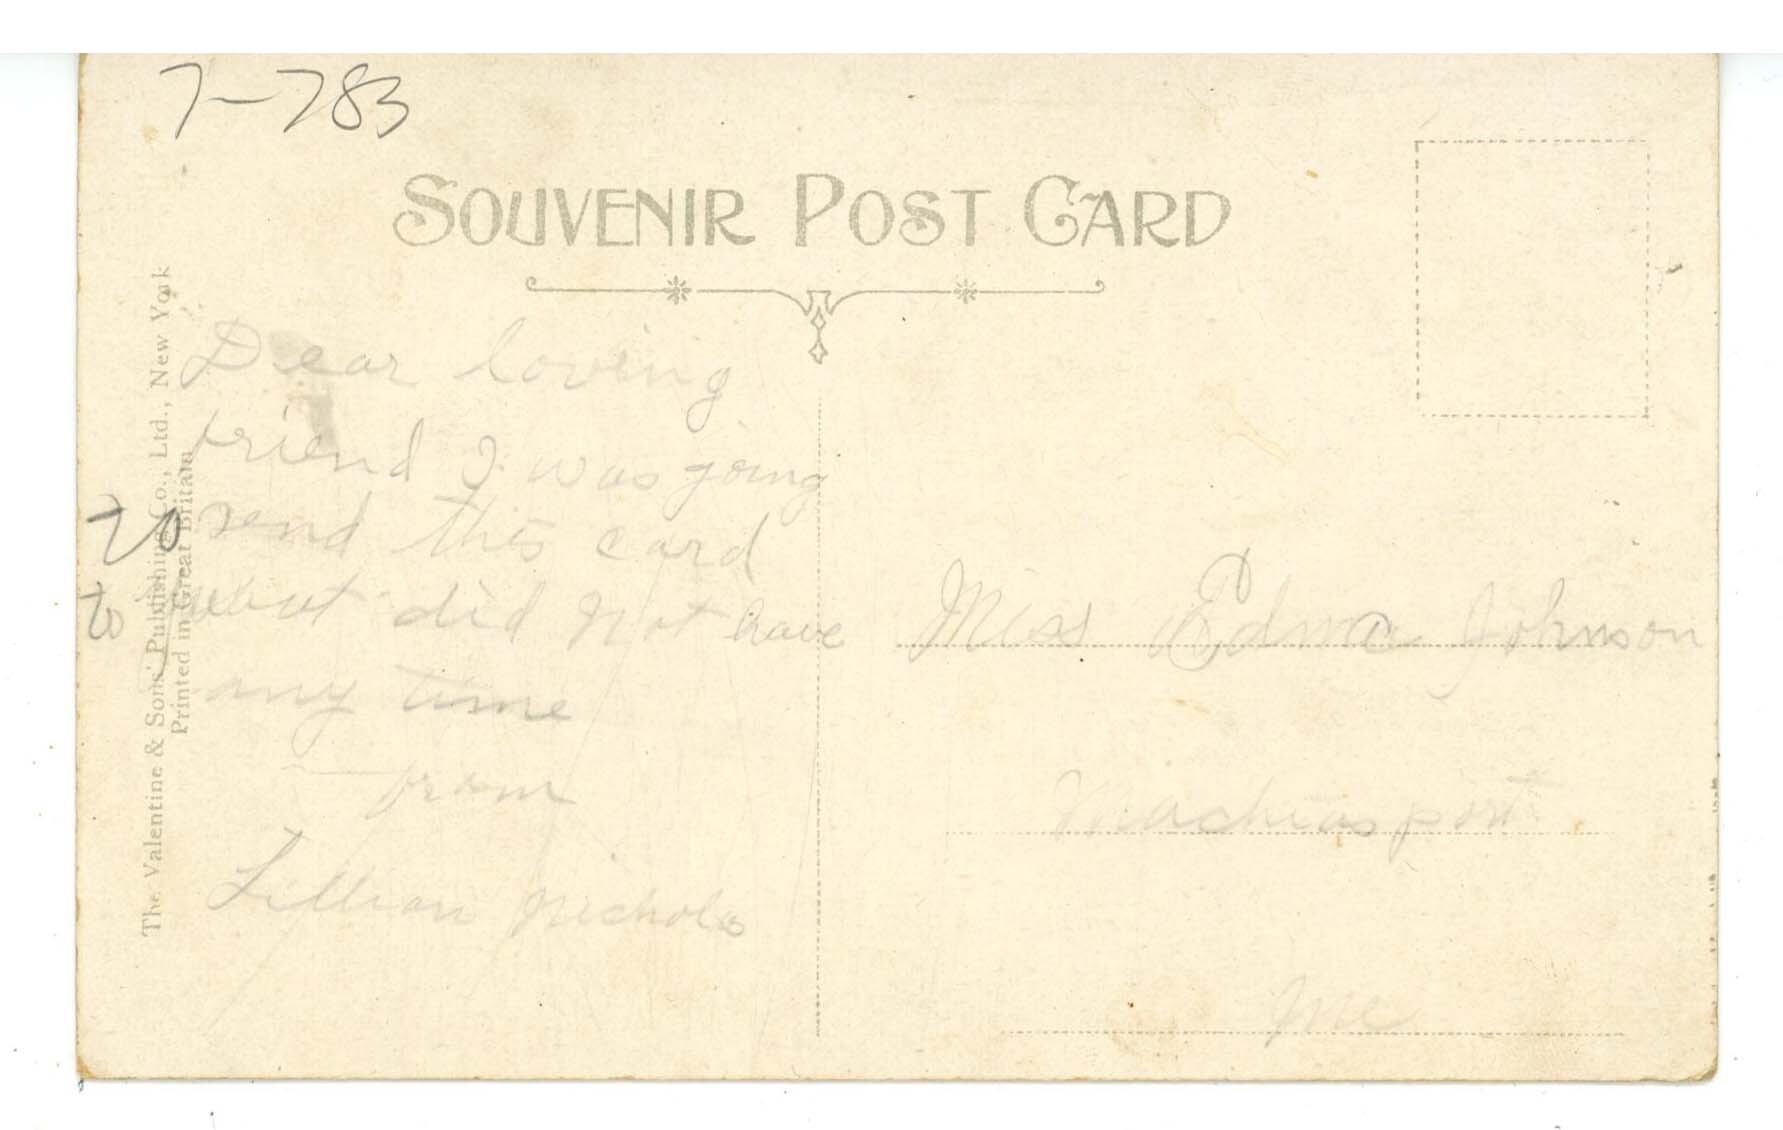 7-783
SOUVENIR POST CARD
The Valentine & Sons' Publishing Co., Ltd., New York
Printed in Great Britain
Dear loving
friend I was going
to send this card
to but did not have
any time
from
Lillian Nichols
Miss Edna Johnson
Machiasport
Me